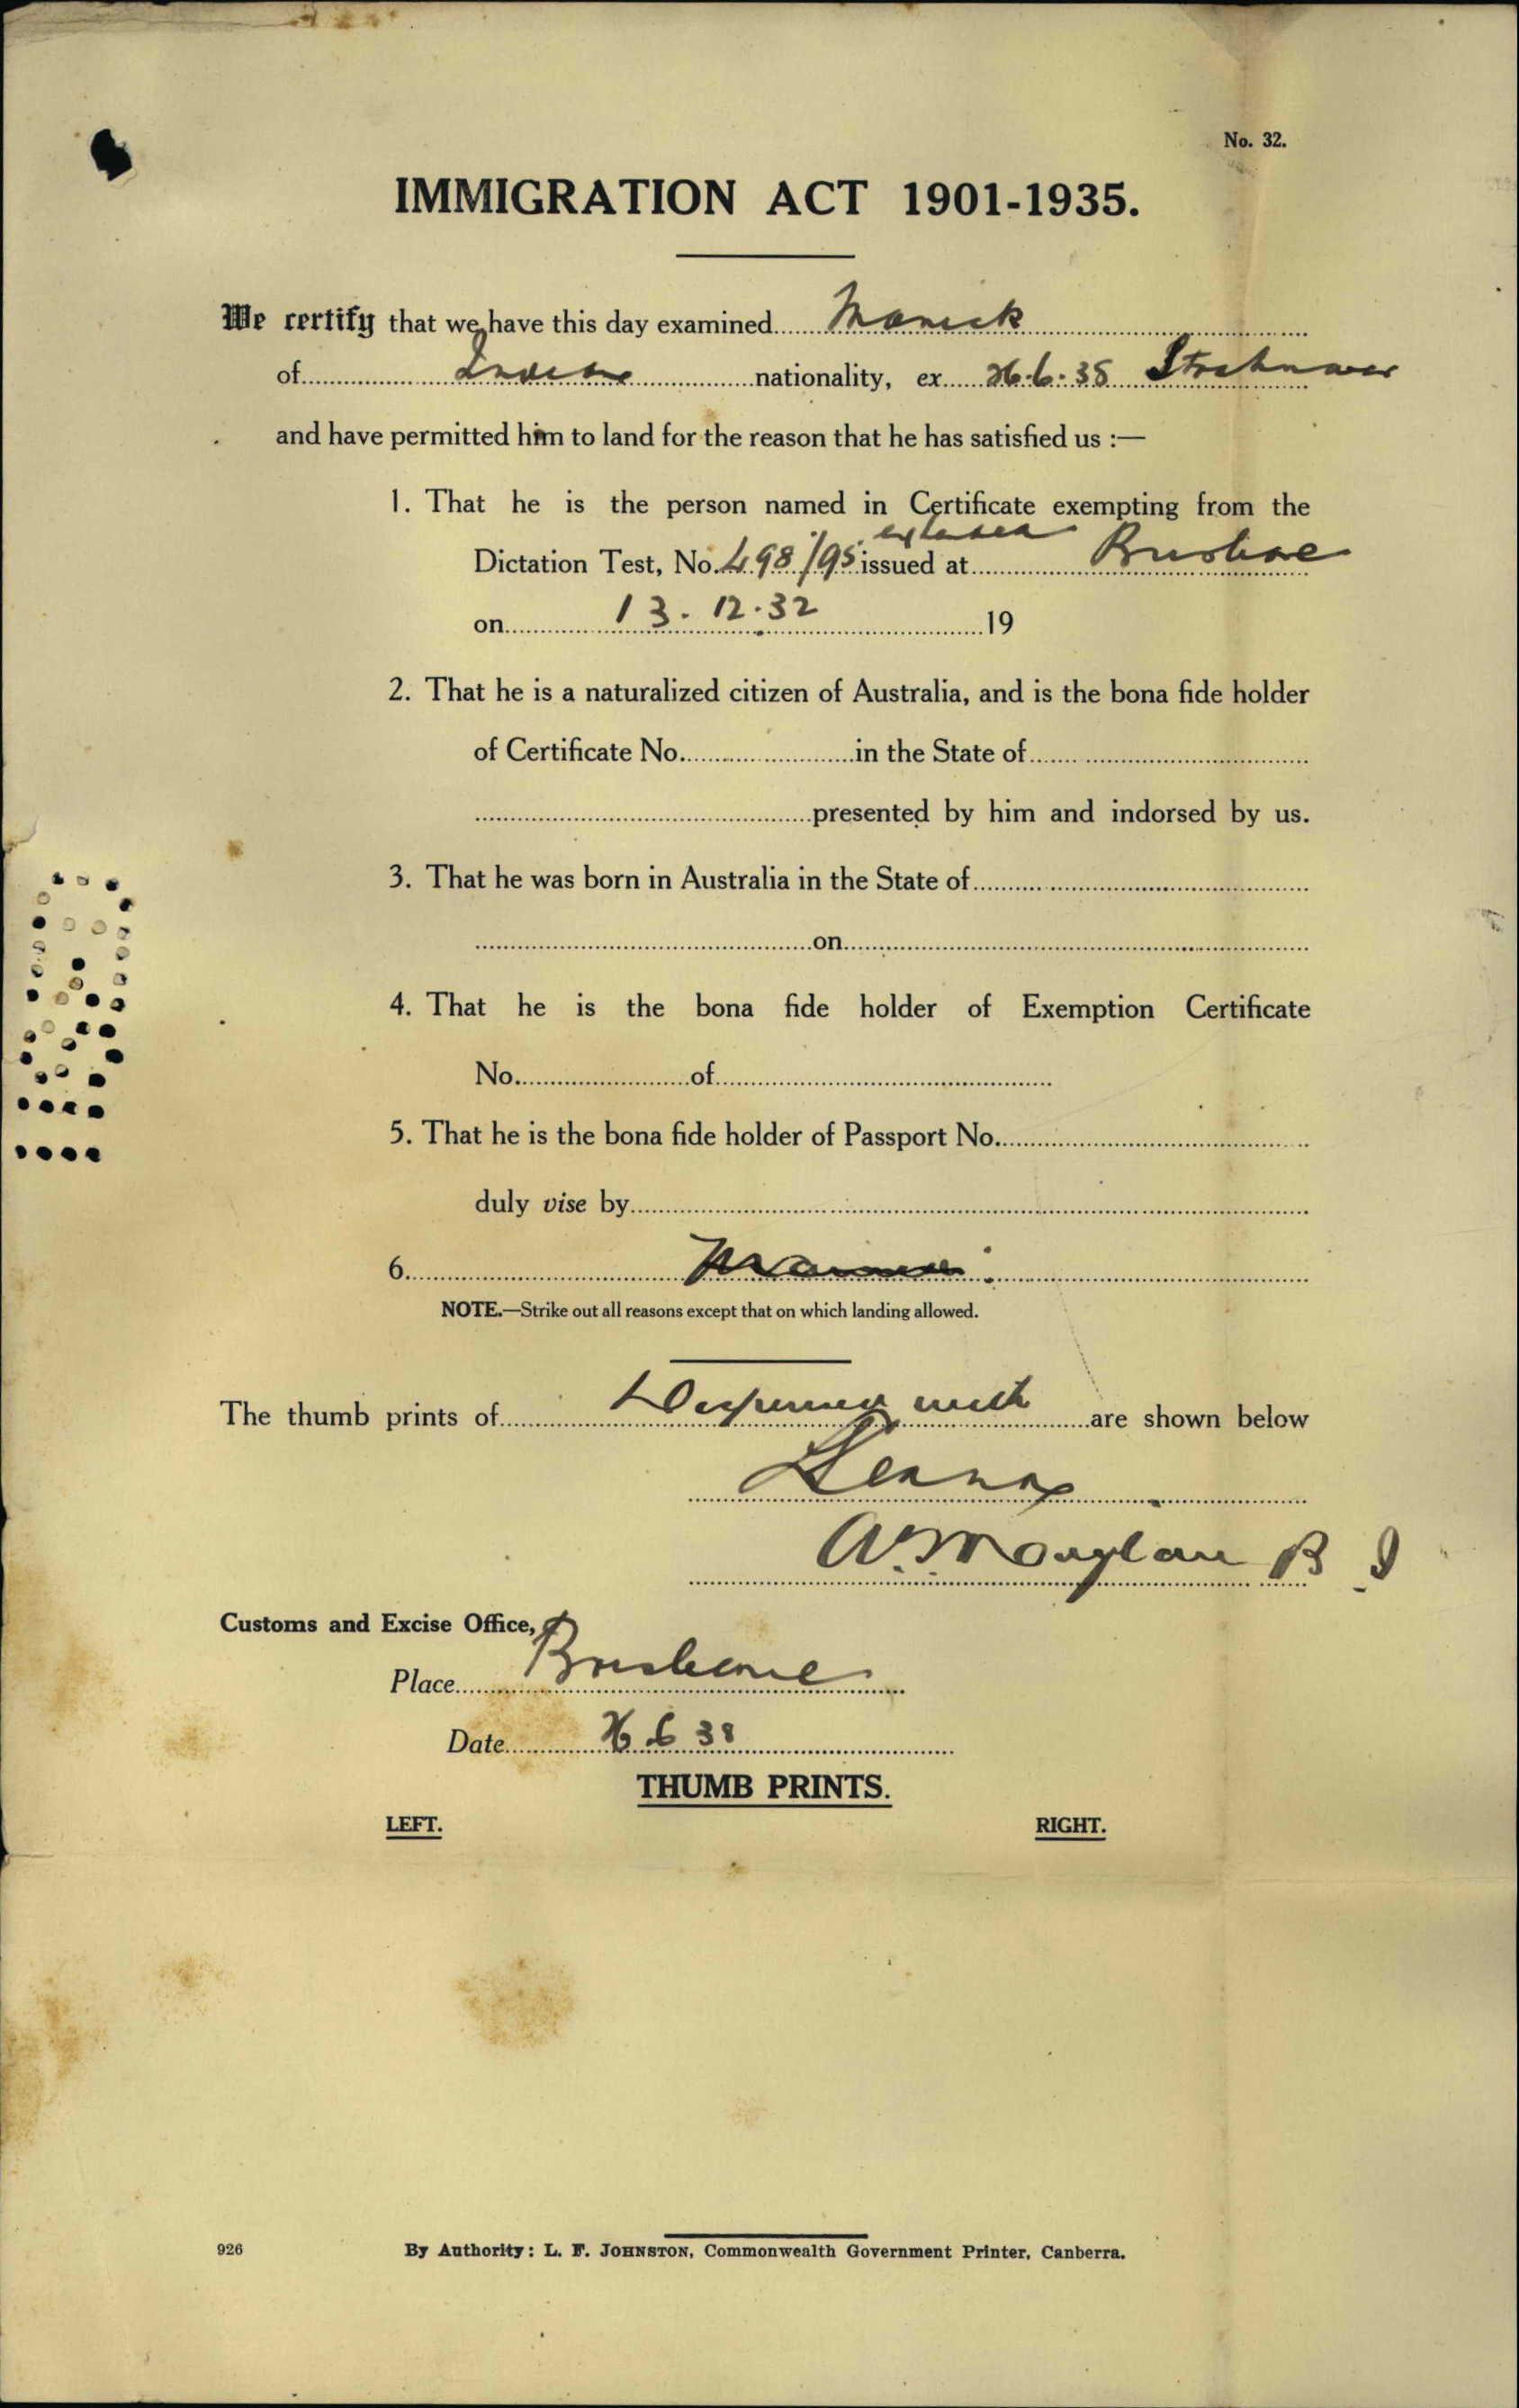 No. 32.
IMMIGRATION ACT 1901-1935.
We certify that we have this day examined Manick
of Indian nationality, ex 26.6.38
and have permitted him to land for the reason that he has satisfied us :—
1. That he is the person named in Certificate exempting from the
extended
Dictation Test, No. 498/95 issued at Brisbane
on 13.12.32 19
2. That he is a naturalized citizen of Australia, and is the bona fide holder
of Certificate No. in the State of
presented by him and indorsed by us.
3. That he was born in Australia in the State of
on
4. That he is the bona fide holder of Exemption Certificate
No. of
5. That he is the bona fide holder of Passport No.
duly vise by
6.
NOTE.—Strike out all reasons except that on which landing allowed.
The thumb prints of Dispensed with are shown below
Customs and Excise Office,
Place Brisbane
Date 26 6 38
THUMB PRINTS.
LEFT. RIGHT.
926 By Authority: L. F. JOHNSTON, Commonwealth Government Printer, Canberra.